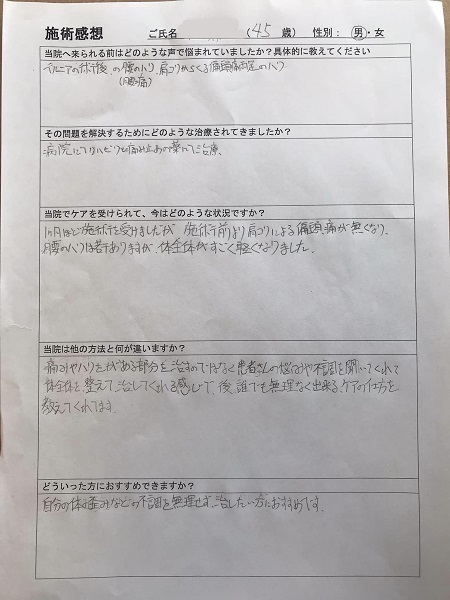 施術感想 ご氏名 (45 歳) 性別: 男・女
当院へ来られる前はどのような声で悩まれていましたか?具体的に教えてください
ヘルニアの術後の腰のハリ、肩コリからくる偏頭痛、足のハリ
(腰痛)
その問題を解決するためにどのような治療されてきましたか?
病院にてリハビリと痛み止めの薬にて治療、
当院でケアを受けられて、今はどのような状況ですか?
1ヶ月ほど施術を受けましたが施術前より肩コリによる偏頭痛が無くなり、
腰のハリは若干ありますが、体全体がすごく軽くなりました。
当院は他の方法と何が違いますか?
痛みやハリがある部分を治すのではなく患者さんの悩みや不調を聞いてくれて
体全体を整えて治してくれる感じで、後、誰でも無理なく出来るケアの仕方を
教えてくれてます。
どういった方におすすめできますか?
自分の体の歪みなどの不調を無理せず治したい方におすすめです。